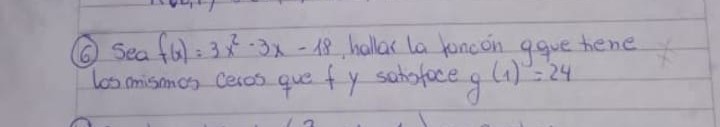 ⑥ Sea f(x) = 3x² - 3x - 18, hallar la función g que tiene
los mismos ceros que f y satisface g (1) = 24